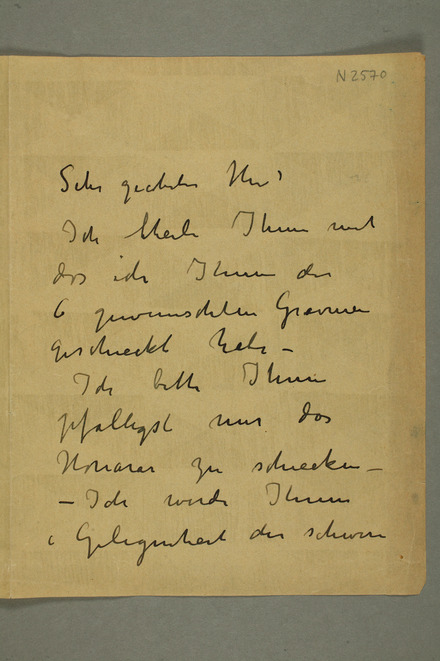 N 2570
Sehr geehrter Herr!
Ich theile Ihnen mit
das ich Ihnen die
6 gewunschten Gravuren
geschieckt habe –
Ich bitte Ihnen
gefälligst mir das
Honarar zu schiecken –
– Ich werde Ihnen
Gelegenheit der